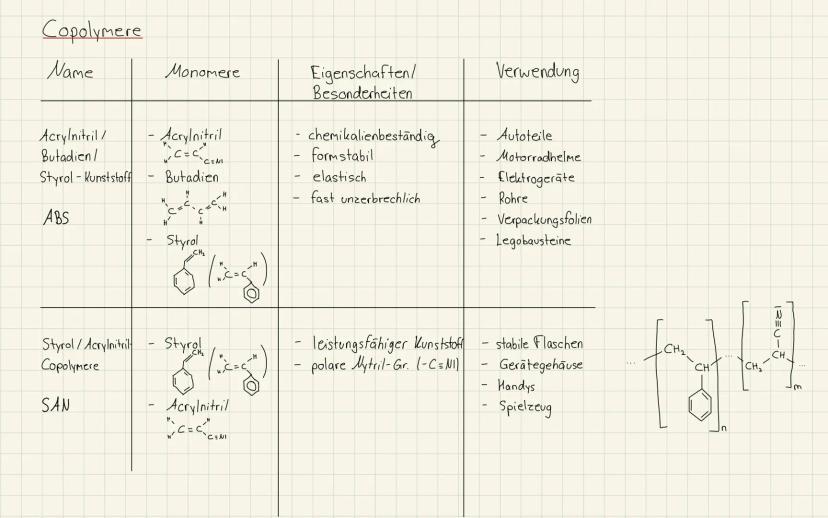 Copolymere
Name
Monomere
Eigenschaften/
Besonderheiten
Verwendung
Acrylnitril/
Butadien/
Styrol-Kunststoff
ABS
- Acrylnitril
H H
C=C
H C≡N|
- Butadien
H H H
C=C C=C
H H H
- Styrol
CH₂
H H
C=C
H
- chemikalienbeständig
- formstabil
- elastisch
- fast unzerbrechlich
- Autoteile
- Motorradhelme
- Elektrogeräte
- Rohre
- Verpackungsfolien
- Legobausteine
Styrol/Acrylnitril-
Copolymere
SAN
- Styrol
CH₂
H H
C=C
H
- Acrylnitril
H H
C=C
H C≡N|
- leistungsfähiger Kunststoff
- polare Nytril-Gr. (-C≡N|)
- stabile Flaschen
- Gerätegehäuse
- Handys
- Spielzeug
... CH₂ CH n ... CH₂ CH C≡N m ...